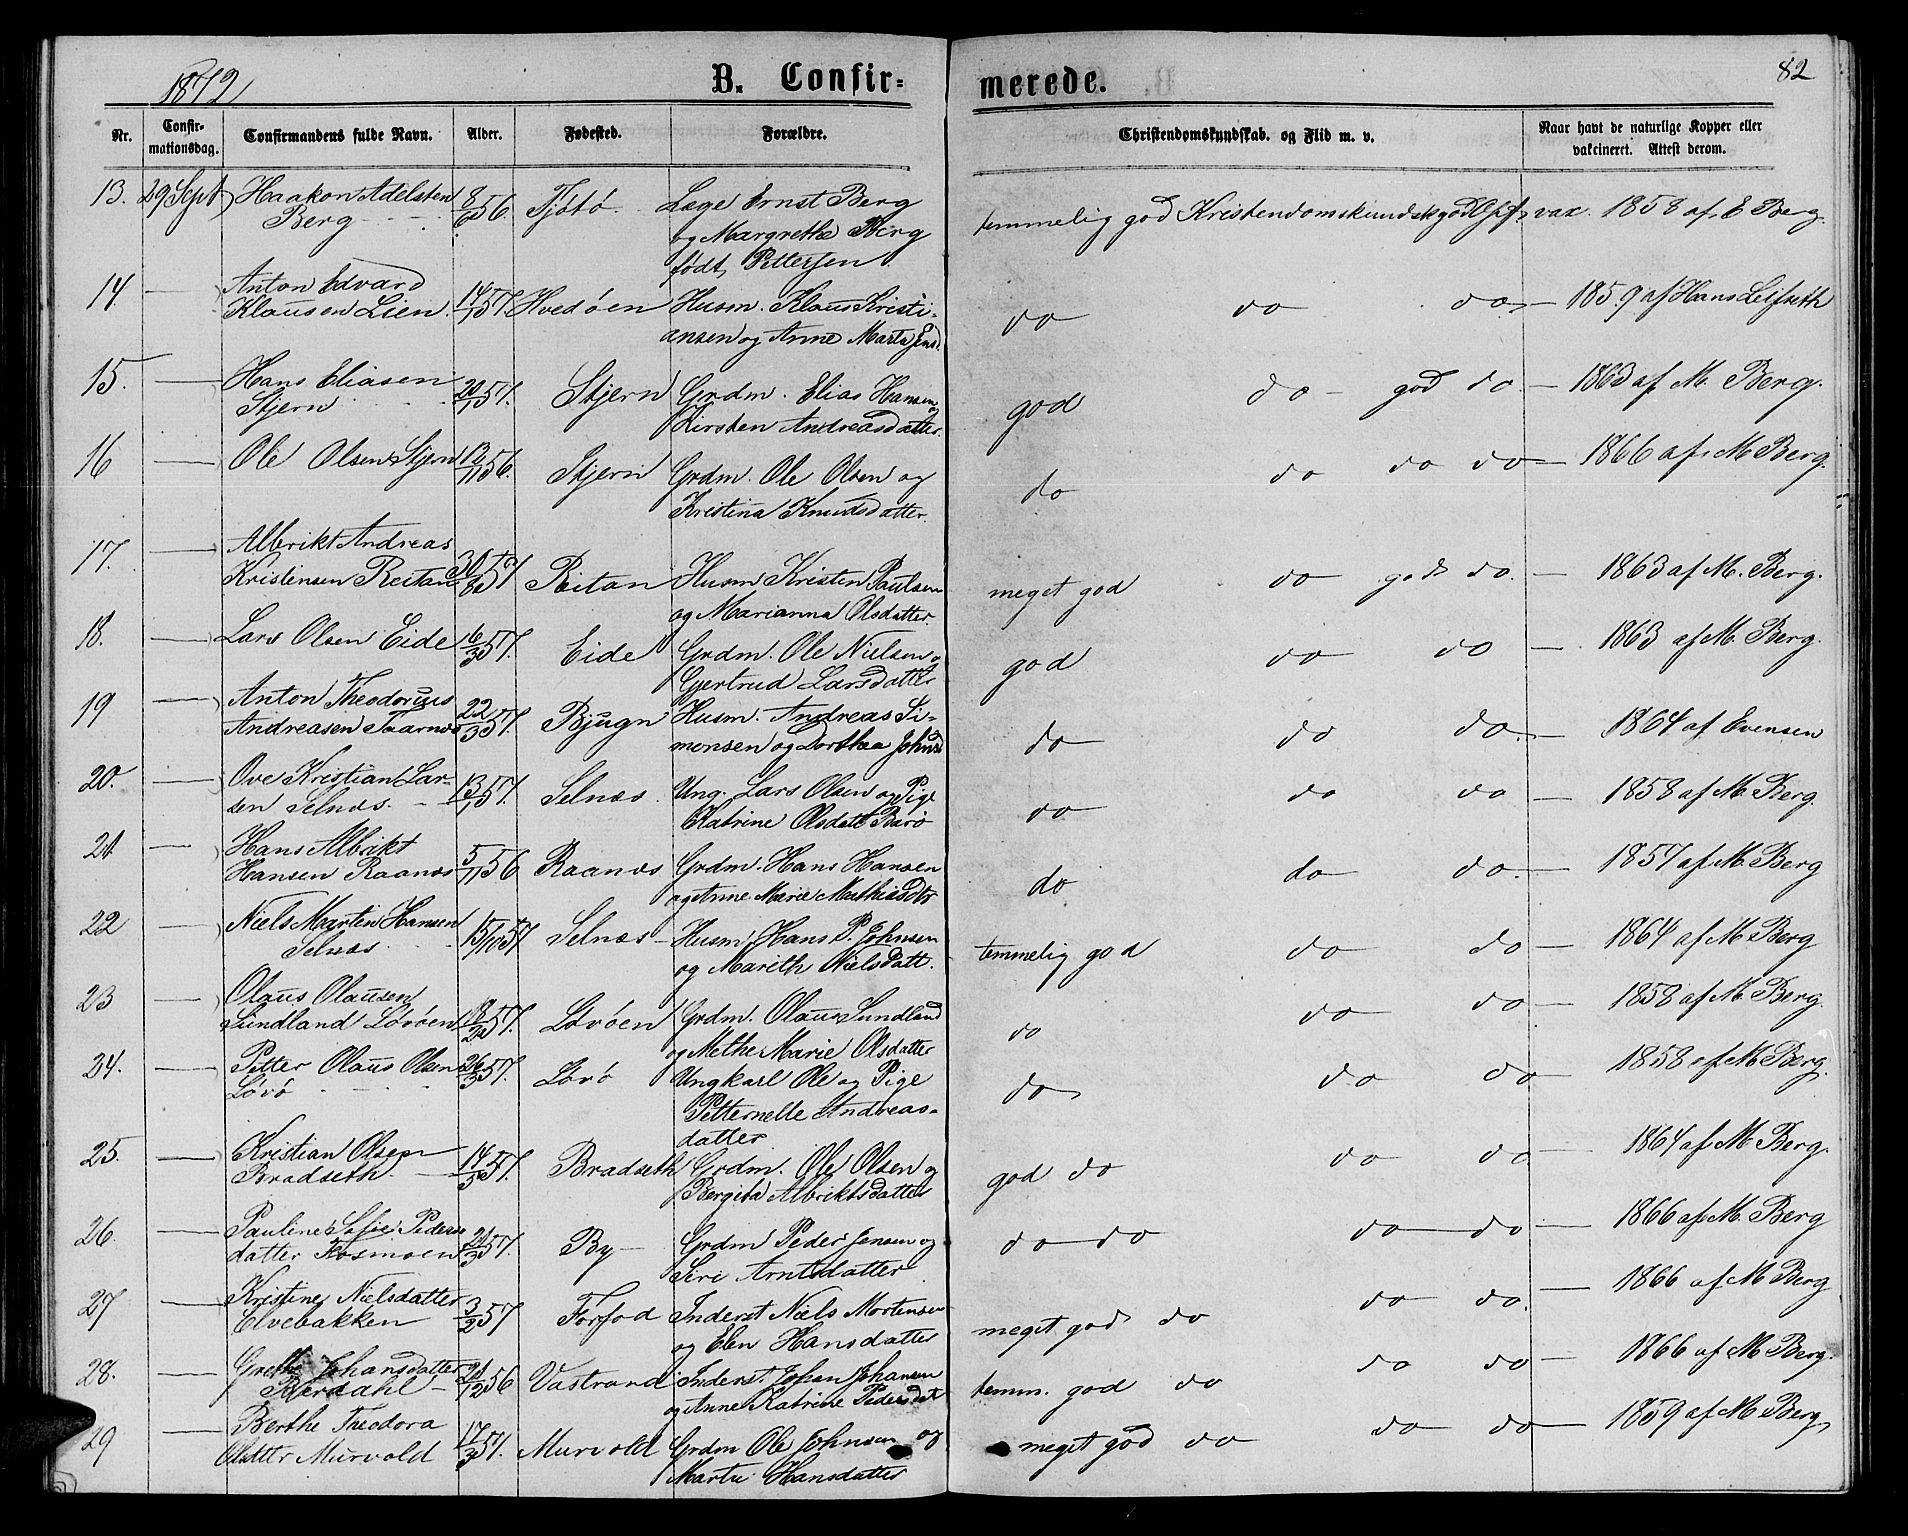 1872
B. Confir-
merede.
82
Nr.
Confir-
mationsdag.
Confirmandens fulde Navn.
Alder.
Fødested.
Forældre.
Christendomskundskab. og Flid m. v.
Naar havt de naturlige Kopper eller
vakcineret. Attest derom.
13. 29 Sept Haakon Adelsten
Berg 8/6 56. Tjøtø. Læge Ernst Berg
og Margrethe Berg
født Pettersen
temmelig god Kristendomskundsk god vax. 1858 af E Berg.
14 — Anton Edvard
Klausen Lien. 14/1 57. Hvedøen Husm. Klaus Kristi-
ansen og Anne Marta
do do do — 1859 af Hans Leifseth
15. — Hans Eliasen
Stjern 20/1 57. Stjern Grdm. Elias Hansen og
Kirsten Andreasdatter.
god do — god do — 1863 af M. Berg.
16 — Ole Olsen Stjern 12/11 56. Stjern Grdm. Ole Olsen og
Kristina Knudsdatter.
do do do do — 1866 af M Berg.
17. — Albrikt Andreas
Kristensen Reitan 30/8 57 Reitan Husm Kristen Paulsen
og Marianna Olsdatter.
meget god do god do. — 1863 af M. Berg.
18. — Lars Olsen Eide 6/3 57. Eide Grdm. Ole Nielsen og
Gjertrud Larsdatter
god do do — 1863 af M. Berg.
19 — Anton Theodorius
Andreasen Taarnes 22/3 57. Bjugn Husm. Andreas Si-
monsen og Dorthea Johnsd
do do do. — 1864 af Evensen
20. — Ove Kristian Lar-
sen Selnæs. 13/1 57. Selnæs. Ung. Lars Olsen og Pige
Katrine Olsdatt Barø
do do do — 1858 af M. Berg.
21 — Hans Albrikt
Hansen Raanes 5/11 56 Raanæs Grdm. Hans Hansen
og Anne Marie Mathiasdtr
do do do. — 1857 af M. Berg
22 — Niels Martin Hansen
Selnæs. 15/10 57 Selnæs — Husm. Hans P. Johnsen
og Marith Nielsdatt.
temmelig god do do — 1864 af M Berg
23 — Olaus Olausen
Sundland Løvøen 57. Løvøen Grdm. Olaus Sundland
og Methe Marie Olsdatter
do do do — 1858 af M. Berg.
24. — Petter Olaus Olsen
Løvø 26/3 57. Løvø Ungkarl Ole og Pige
Petternelle Andreas-
datter
do do do — 1858 af M Berg.
25. — Kristian Olsen
Bradseth. 14/5 57. Bradseth Grdm. Ole Olsen og
Bergita Albriktsdatter
god do do do — 1864 af M. Berg.
26. — Pauline Sofie Peders
datter Fosmoen 21/3 57. By — Grdm Peder Jensen og
Siri Arntsdatter
do do do do — 1866 af M. Berg
27 — Kristine Nielsdatter
Elvebakken 3/2 57 Forfod Inderst Niels Mortensen
og Elen Hansdatter
meget god do do do. — 1866 af M Berg
28. — Grethe Johansdatter
Kierdahl — 21/12 56 Vastrand Inderst. Johan Johansen
og Anne Katrine Pedersdat
temm. god do do do — 1866 af M Berg.
29 — Berthe Theodora
Olsdttr Murvold 17/3 57. Murvold Grdm Ole Johnsen og
Marta Hansdatter
meget god do do do — 1859 af M Berg